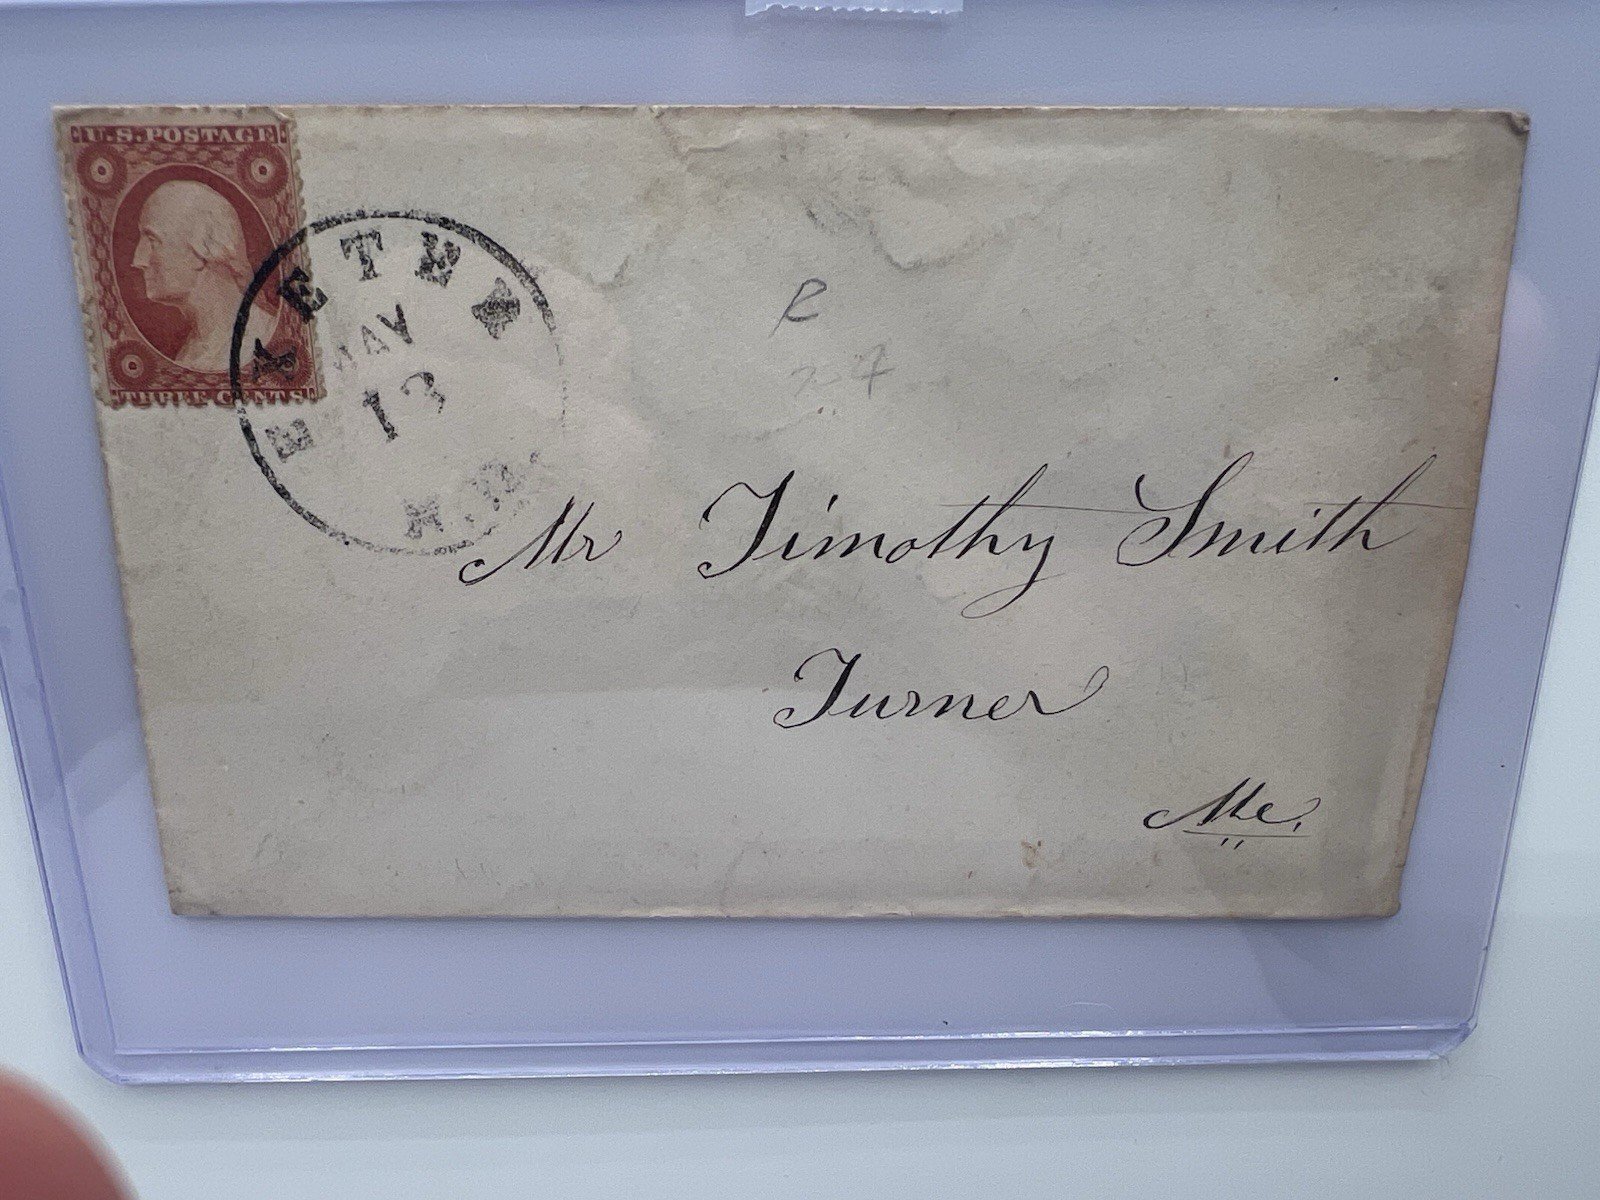 U.S. POSTAGE
THREE CENTS
EXETER
MAY
13
N.H.
Mr Timothy Smith
Turner
Me.